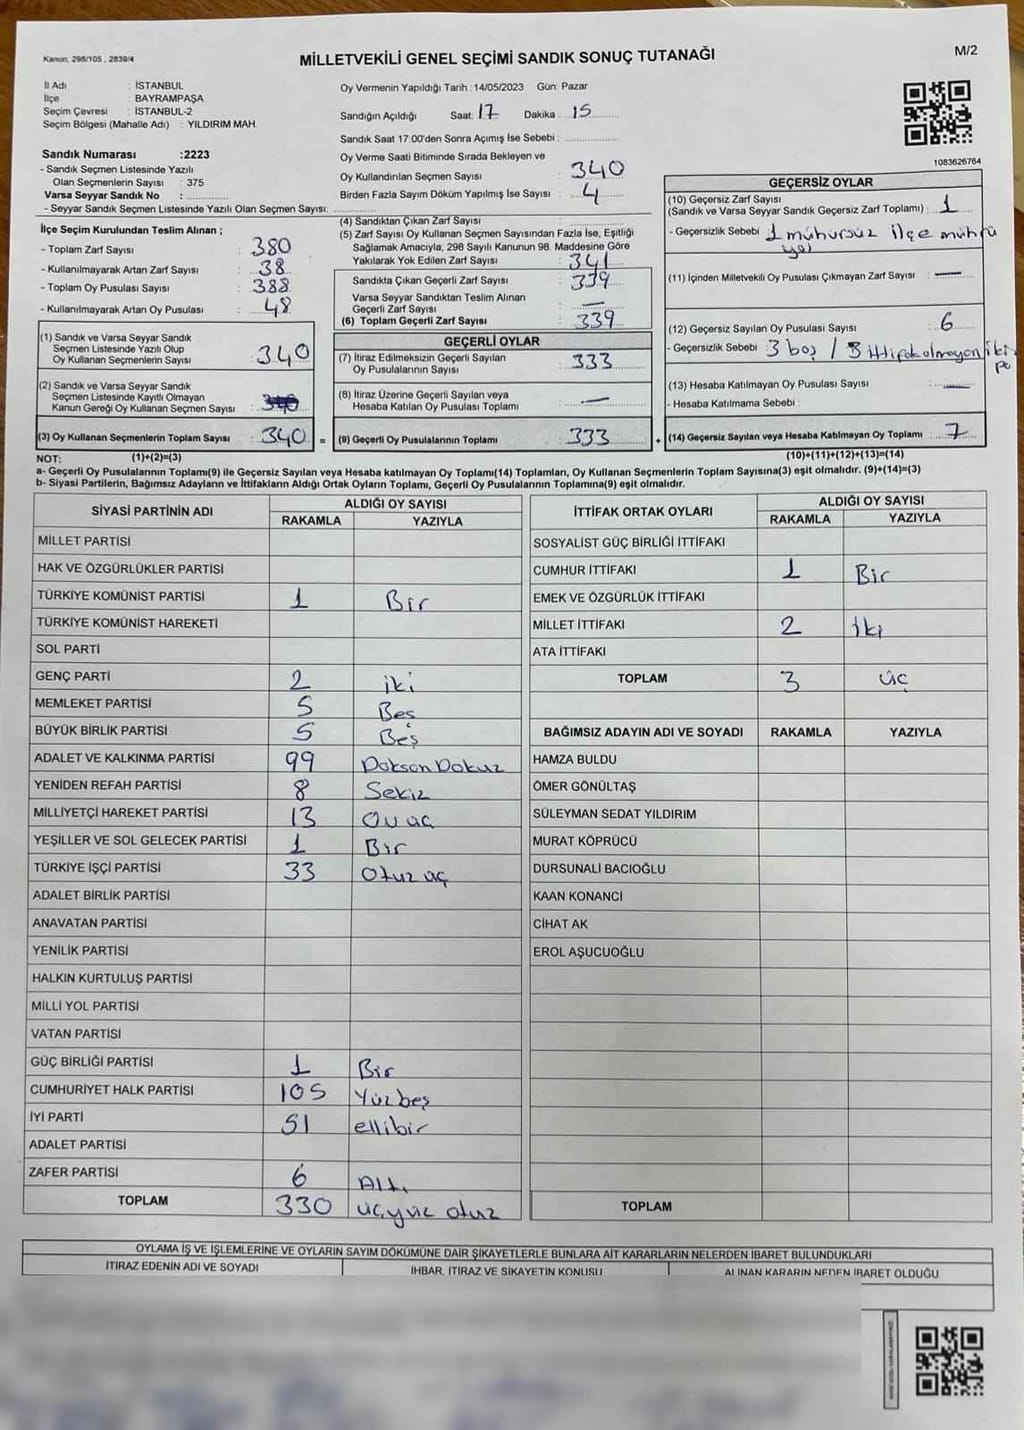 Kanun: 298/105 , 2839/4
MİLLETVEKİLİ GENEL SEÇİMİ SANDIK SONUÇ TUTANAĞI
M/2
İl Adı : İSTANBUL
İlçe : BAYRAMPAŞA
Seçim Çevresi : İSTANBUL-2
Seçim Bölgesi (Mahalle Adı) : YILDIRIM MAH.
Sandık Numarası :2223
- Sandık Seçmen Listesinde Yazılı
Olan Seçmenlerin Sayısı : 375
Varsa Seyyar Sandık No :
- Seyyar Sandık Seçmen Listesinde Yazılı Olan Seçmen Sayısı:
Oy Vermenin Yapıldığı Tarih :14/05/2023 Gün: Pazar
Sandığın Açıldığı Saat: 17 Dakika : 15
Sandık Saat 17:00'den Sonra Açımış İse Sebebi :
Oy Verme Saati Bitiminde Sırada Bekleyen ve
Oy Kullandırılan Seçmen Sayısı : 340
Birden Fazla Sayım Döküm Yapılmış İse Sayısı : 4
1083626764
İlçe Seçim Kurulundan Teslim Alınan ;
- Toplam Zarf Sayısı : 380
- Kullanılmayarak Artan Zarf Sayısı : 38
- Toplam Oy Pusulası Sayısı : 388
- Kullanılmayarak Artan Oy Pusulası : 48
(1) Sandık ve Varsa Seyyar Sandık
Seçmen Listesinde Yazılı Olup
Oy Kullanan Seçmenlerin Sayısı : 340
(2) Sandık ve Varsa Seyyar Sandık
Seçmen Listesinde Kayıtlı Olmayan
Kanun Gereği Oy Kullanan Seçmen Sayısı :
(3) Oy Kullanan Seçmenlerin Toplam Sayısı : 340 =
(4) Sandıktan Çıkan Zarf Sayısı :
(5) Zarf Sayısı Oy Kullanan Seçmen Sayısından Fazla İse, Eşitliği
Sağlamak Amacıyla; 298 Sayılı Kanunun 98. Maddesine Göre
Yakılarak Yok Edilen Zarf Sayısı : 341
Sandıkta Çıkan Geçerli Zarf Sayısı : 339
Varsa Seyyar Sandıktan Teslim Alınan
Geçerli Zarf Sayısı : —
(6) Toplam Geçerli Zarf Sayısı : 339
GEÇERLİ OYLAR
(7) İtiraz Edilmeksizin Geçerli Sayılan
Oy Pusulalarının Sayısı : 333
(8) İtiraz Üzerine Geçerli Sayılan veya
Hesaba Katılan Oy Pusulası Toplamı : —
(9) Geçerli Oy Pusulalarının Toplamı : 333 +
GEÇERSİZ OYLAR
(10) Geçersiz Zarf Sayısı
(Sandık ve Varsa Seyyar Sandık Geçersiz Zarf Toplamı) : 1
- Geçersizlik Sebebi : 1 mühürsüz ilçe mührü
(11) İçinden Milletvekili Oy Pusulası Çıkmayan Zarf Sayısı : —
(12) Geçersiz Sayılan Oy Pusulası Sayısı : 6
- Geçersizlik Sebebi : 3 boş / 3 ittifak olmayan iki
(13) Hesaba Katılmayan Oy Pusulası Sayısı : —
- Hesaba Katılmama Sebebi :
(14) Geçersiz Sayılan veya Hesaba Katılmayan Oy Toplamı : 7
NOT: (1)+(2)=(3)
(10)+(11)+(12)+(13)=(14)
a- Geçerli Oy Pusulalarının Toplamı(9) ile Geçersiz Sayılan veya Hesaba katılmayan Oy Toplamı(14) Toplamları, Oy Kullanan Seçmenlerin Toplam Sayısına(3) eşit olmalıdır. (9)+(14)=(3)
b- Siyasi Partilerin, Bağımsız Adayların ve İttifakların Aldığı Ortak Oyların Toplamı, Geçerli Oy Pusulalarının Toplamına(9) eşit olmalıdır.
SİYASİ PARTİNİN ADI ALDIĞI OY SAYISI
RAKAMLA YAZIYLA
MİLLET PARTİSİ
HAK VE ÖZGÜRLÜKLER PARTİSİ
TÜRKİYE KOMÜNİST PARTİSİ 1 Bir
TÜRKİYE KOMÜNİST HAREKETİ
SOL PARTİ
GENÇ PARTİ 2 iki
MEMLEKET PARTİSİ 5 Beş
BÜYÜK BİRLİK PARTİSİ 5 Beş
ADALET VE KALKINMA PARTİSİ 99 Doksan Dokuz
YENİDEN REFAH PARTİSİ 8 Sekiz
MİLLİYETÇİ HAREKET PARTİSİ 13 On üç
YEŞİLLER VE SOL GELECEK PARTİSİ 1 Bir
TÜRKİYE İŞÇİ PARTİSİ 33 Otuz üç
ADALET BİRLİK PARTİSİ
ANAVATAN PARTİSİ
YENİLİK PARTİSİ
HALKIN KURTULUŞ PARTİSİ
MİLLİ YOL PARTİSİ
VATAN PARTİSİ
GÜÇ BİRLİĞİ PARTİSİ 1 Bir
CUMHURİYET HALK PARTİSİ 105 Yüz beş
İYİ PARTİ 51 ellibir
ADALET PARTİSİ
ZAFER PARTİSİ 6 Altı
TOPLAM 330 üçyüz otuz
İTTİFAK ORTAK OYLARI ALDIĞI OY SAYISI
RAKAMLA YAZIYLA
SOSYALİST GÜÇ BİRLİĞİ İTTİFAKI
CUMHUR İTTİFAKI 1 Bir
EMEK VE ÖZGÜRLÜK İTTİFAKI
MİLLET İTTİFAKI 2 iki
ATA İTTİFAKI
TOPLAM 3 üç
BAĞIMSIZ ADAYIN ADI VE SOYADI RAKAMLA YAZIYLA
HAMZA BULDU
ÖMER GÖNÜLTAŞ
SÜLEYMAN SEDAT YILDIRIM
MURAT KÖPRÜCÜ
DURSUNALİ BACIOĞLU
KAAN KONANCİ
CİHAT AK
EROL AŞUCUOĞLU
TOPLAM
OYLAMA İŞ VE İŞLEMLERİNE VE OYLARIN SAYIM DÖKÜMÜNE DAİR ŞİKAYETLERLE BUNLARA AİT KARARLARIN NELERDEN İBARET BULUNDUKLARI
İTİRAZ EDENİN ADI VE SOYADI İHBAR, İTİRAZ VE ŞİKAYETİN KONUSU ALINAN KARARIN NEDEN İBARET OLDUĞU